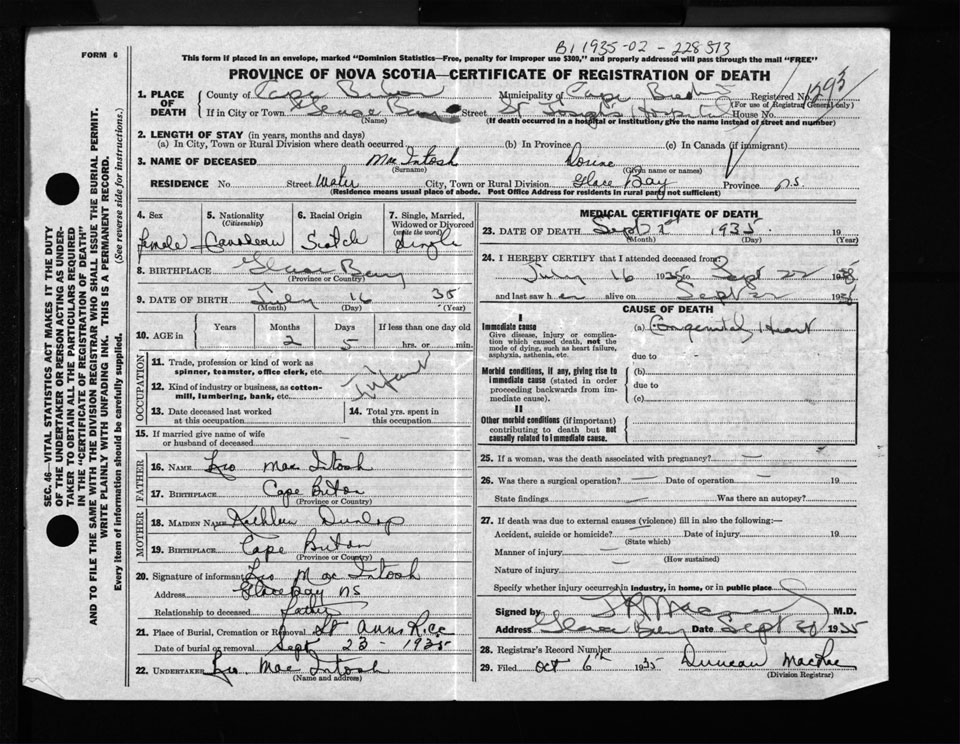 B1 1935-02-228573
FORM 6
This form if placed in an envelope, marked "Dominion Statistics—Free, penalty for improper use $300," and properly addressed will pass through the mail "FREE"
PROVINCE OF NOVA SCOTIA—CERTIFICATE OF REGISTRATION OF DEATH
1. PLACE OF DEATH
County of Cape Breton Municipality of Cape Breton Registered No.
(For use of Registrar General only)
If in City or Town Glace Bay Street St Joseph's Hospital House No.
(Name) (If death occurred in a hospital or institution, give the name instead of street and number)
2. LENGTH OF STAY (in years, months and days)
(a) In City, Town or Rural Division where death occurred (b) In Province (c) In Canada (if immigrant)
3. NAME OF DECEASED Mac Intosh
(Surname) (Given name or names)
RESIDENCE No. Street Water City, Town or Rural Division Glace Bay Province N.S.
(Residence means usual place of abode. Post Office Address for residents in rural parts not sufficient)
4. Sex
Female
5. Nationality
(Citizenship)
Canadian
6. Racial Origin
Scotch
7. Single, Married, Widowed or Divorced
(write the word)
Single
8. BIRTHPLACE Glace Bay
(Province or Country)
9. DATE OF BIRTH July 16 35
(Month) (Day) (Year)
10. AGE in
Years Months Days If less than one day old
2 5 hrs. or min.
OCCUPATION
11. Trade, profession or kind of work as
spinner, teamster, office clerk, etc.
12. Kind of industry or business, as cotton-
mill, lumbering, bank, etc.
Infant
13. Date deceased last worked
at this occupation
14. Total yrs. spent in
this occupation
15. If married give name of wife
or husband of deceased
FATHER
16. NAME Leo Mac Intosh
17. BIRTHPLACE Cape Breton
(Province or Country)
MOTHER
18. MAIDEN NAME Kathleen Dunlop
19. BIRTHPLACE Cape Breton
(Province or Country)
20. Signature of informant Leo Mac Intosh
Address Glace Bay NS
Relationship to deceased Father
21. Place of Burial, Cremation or Removal St Anns R.C.C
Date of burial or removal Sept 23 - 1935
22. UNDERTAKER Leo Mac Intosh
(Name and address)
MEDICAL CERTIFICATE OF DEATH
23. DATE OF DEATH Sept 1935 19
(Month) (Day) (Year)
24. I HEREBY CERTIFY that I attended deceased from:
July 16 1935 to Sept 22 1935
and last saw her alive on Sept 22 1935
CAUSE OF DEATH
I
Immediate cause
Give disease, injury or complica-
tion which caused death, not the
mode of dying, such as heart failure,
asphyxia, asthenia, etc.
(a) Congenital Heart
due to
Morbid conditions, if any, giving rise to
immediate cause (stated in order
proceeding backwards from im-
mediate cause).
(b)
due to
(c)
II
Other morbid conditions (if important)
contributing to death but not
causally related to immediate cause.
25. If a woman, was the death associated with pregnancy?
26. Was there a surgical operation? Date of operation 19
State findings Was there an autopsy?
27. If death was due to external causes (violence) fill in also the following:—
Accident, suicide or homicide? Date of injury 19
(State which)
Manner of injury
(How sustained)
Nature of injury
Specify whether injury occurred in industry, in home, or in public place.
Signed by M.D.
Address Glace Bay Date Sept 1935
28. Registrar's Record Number
29. Filed Oct 6th 1935 Duncan MacRae
(Division Registrar)
SEC. 46—VITAL STATISTICS ACT MAKES IT THE DUTY
OF THE UNDERTAKER OR PERSON ACTING AS UNDER-
TAKER TO OBTAIN ALL THE PARTICULARS REQUIRED
IN THE "CERTIFICATE OF REGISTRATION OF DEATH"
AND TO FILE THE SAME WITH THE DIVISION REGISTRAR WHO SHALL ISSUE THE BURIAL PERMIT.
WRITE PLAINLY WITH UNFADING INK. THIS IS A PERMANENT RECORD.
Every item of information should be carefully supplied. (See reverse side for instructions.)